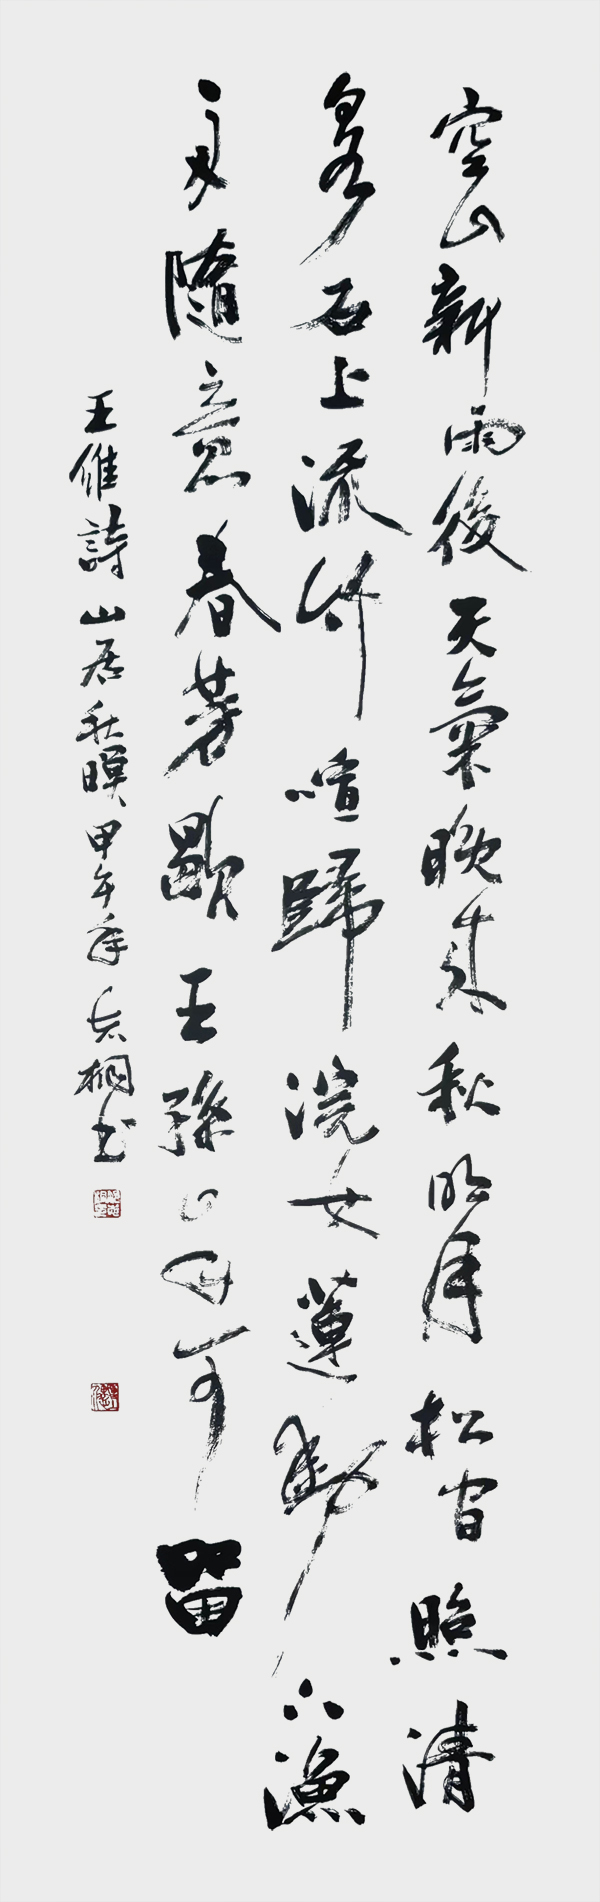 空山新雨後天氣晚來秋明月松間照清
泉石上流竹喧歸浣女蓮動下漁
舟隨意春芳歇王孫自可留
王維詩山居秋暝甲午年志桐书